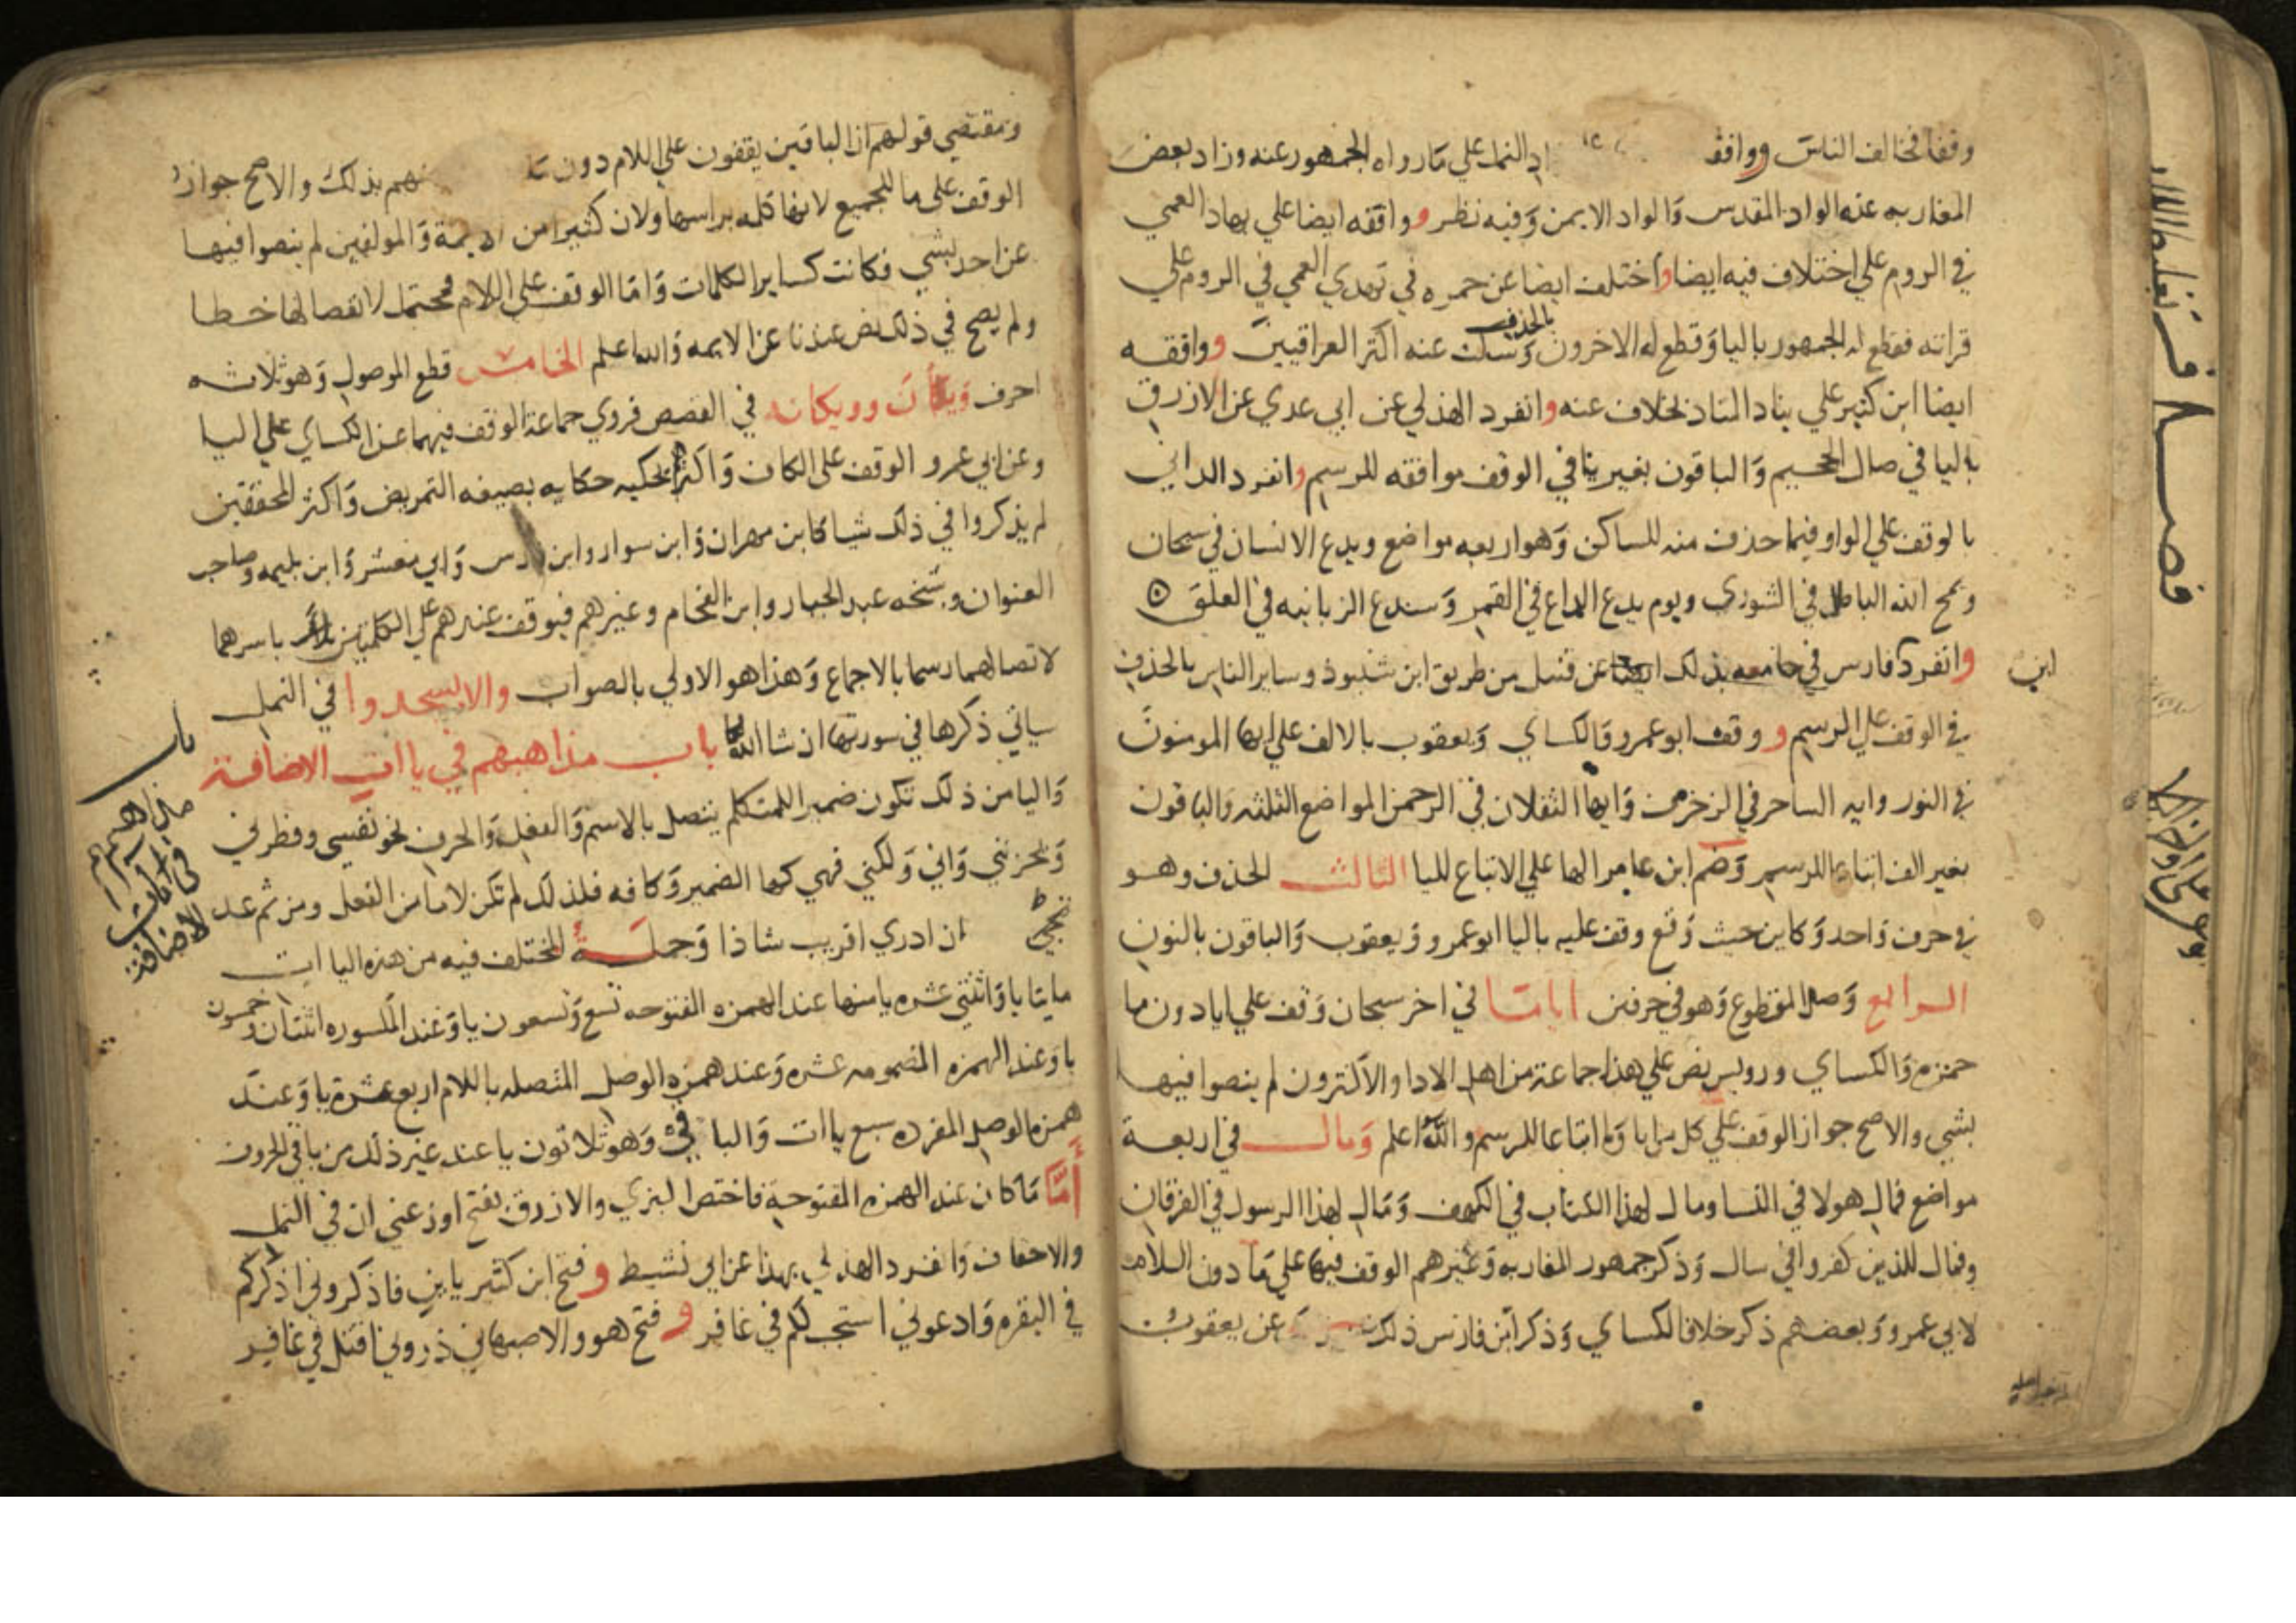 وقفا فخالف الناس ووافقه اد النمل علي مارواه الجمهور عنه وزاد بعض
المغاربه عنه الواد المقدس والواد الايمن وفيه نظر ووافقه ايضا علي بهاد العمي
في الروم علي اختلاف فيه ايضا واختلف ايضا عن حمزه في تهدي العمي في الروم علي
قراته فقطع له الجمهور باليا وقطع له الاخرون بالحذف وسكت عنه اكثر العراقيين ووافقه
ايضا ابن كثير علي يناد المناد بخلاف عنه وانفرد الهذلي عن ابي عدي عن الازرق
باليا في صال الجحيم والباقون بغير يا في الوقف موافقه للرسم وانفرد الداني
بالوقف علي الواو فيما حذف منه للساكن وهو اربعه مواضع ويدع الانسان في سبحان
ويمح الله الباطل في الشوري ويوم يدع الداع في القمر وسندع الزبانيه في العلق
وانفرد ابن فارس في جامعه بذلك عن قنبل من طريق ابن شنبوذ وساير الناس بالحذف
في الوقف علي الرسم ووقف ابو عمرو والكساي ويعقوب بالالف علي ايها المومنون
في النور وايه الساحر في الزخرف وايها الثقلان في الرحمن المواضع الثلثه والباقون
بغير الف اتباعا للرسم وضم ابن عامر الها علي الاتباع لليا الثالث الحذف وهو
في حرف واحد وكاين حيث وقع وقف عليه باليا ابو عمرو ويعقوب والباقون بالنون
الرابع وصل المقطوع وهو في حرفين اياما في اخر سبحان وقف علي ايا دون ما
حمزه والكساي ورويس نص علي هذا جماعة من اهل الادا والاكثرون لم ينصوا فيها
بشي والاصح جواز الوقف علي كل من ايا وما اتباعا للرسم والله اعلم ومال في اربعة
مواضع فمال هولا في النسا ومال لهذا الكتاب في الكهف ومال لهذا الرسول في الفرقان
وفمال للذين كفروا في سال وذكر جمهور المغاربه وغيرهم الوقف فيها علي ما دون اللام
لابي عمرو وبعضهم ذكر خلافا لكساي وذكر ابن فارس ذلك عن يعقوب
ومقتضي قولهم ان الباقين يقفون علي اللام دون ما نهم بذلك والاصح جواز
الوقف علي ما للجميع لانها كلمه براسها ولان كثيرا من الايمة والمولفين لم ينصوا فيها
عن احد بشي فكانت كساير الكلمات واما الوقف علي اللام فمحتمل لانفصالها خطا
ولم يصح في ذلك نص عندنا عن الايمه والله اعلم الخامس قطع الموصول وهو ثلاثه
احرف ويكان وويكانه في القصص فروي جماعة الوقف فيهما عن الكساي علي اليا
وعن ابي عمرو الوقف علي الكاف واكثر حكايه بصيغه التمريض واكثر المحققين
لم يذكروا في ذلك شيا كابن مهران وابن سوار وابن فارس وابي معشر وابن بليمه وصاحب
العنوان وشيخه عبد الجبار وابن الفحام وغيرهم فيوقف عندهم علي الكلمتين باسرهما
لاتصالهما رسما بالاجماع وهذا هو الاولي بالصواب والا يسجدوا في النمل
سياتي ذكرها في سورتها ان شا الله باب مذاهبهم في ياات الاضافة
واليا من ذلك تكون ضمير المتكلم يتصل بالاسم والفعل والحرف نحو نفسي وفطرني
وليحزنني واني ولكني فهي كها الضمير وكافه فلذلك لم تكن لاما من الفعل ومن ثم عد
ان ادري اقريب شاذا وجملة المختلف فيه من هذه الياات
مايتا يا واثنتي عشره يا منها عند الهمزه المفتوحه تسع وتسعون يا وعند المكسوره اثنتان وخمسون
يا وعند الهمزه المضمومه عشره وعند همزه الوصل المتصله باللام اربع عشرة يا وعند
همزه الوصل المفرده سبع ياات والباقي وهو ثلاثون يا عند غير ذلك من باقي الحروف
أمّا ما كان عند الهمزه المفتوحة فاختص البزي والازرق بفتح اوزعني ان في النمل
والاحقاف وانفرد الهذلي بهذا عن ابي نشيط وفتح ابن كثير ياين فاذكروني اذكركم
في البقره وادعوني استجب لكم في غافر وفتح هو والاصبهاني ذروني اقتل في غافر
ابن
باب
مذاهبهم
في ياات
الاضافة